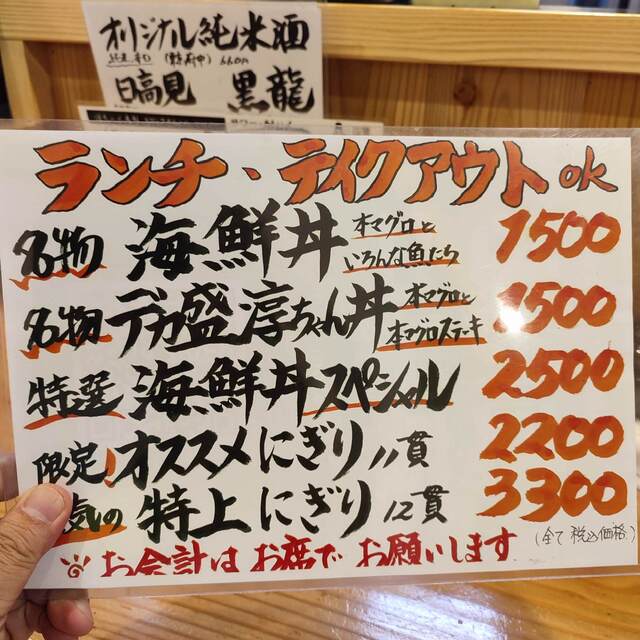 オリジナル純米酒
日高見 黒龍
ランチ、テイクアウト ok
名物 海鮮丼 本マグロといろんな魚たち 1500
名物 デカ盛淳ちゃん丼 本マグロと本マグロステーキ 1500
特選 海鮮丼スペシャル 2500
限定 オススメにぎり 11貫 2200
気の 特上にぎり 12貫 3300
(全て税込価格)
※お会計はお席でお願いします